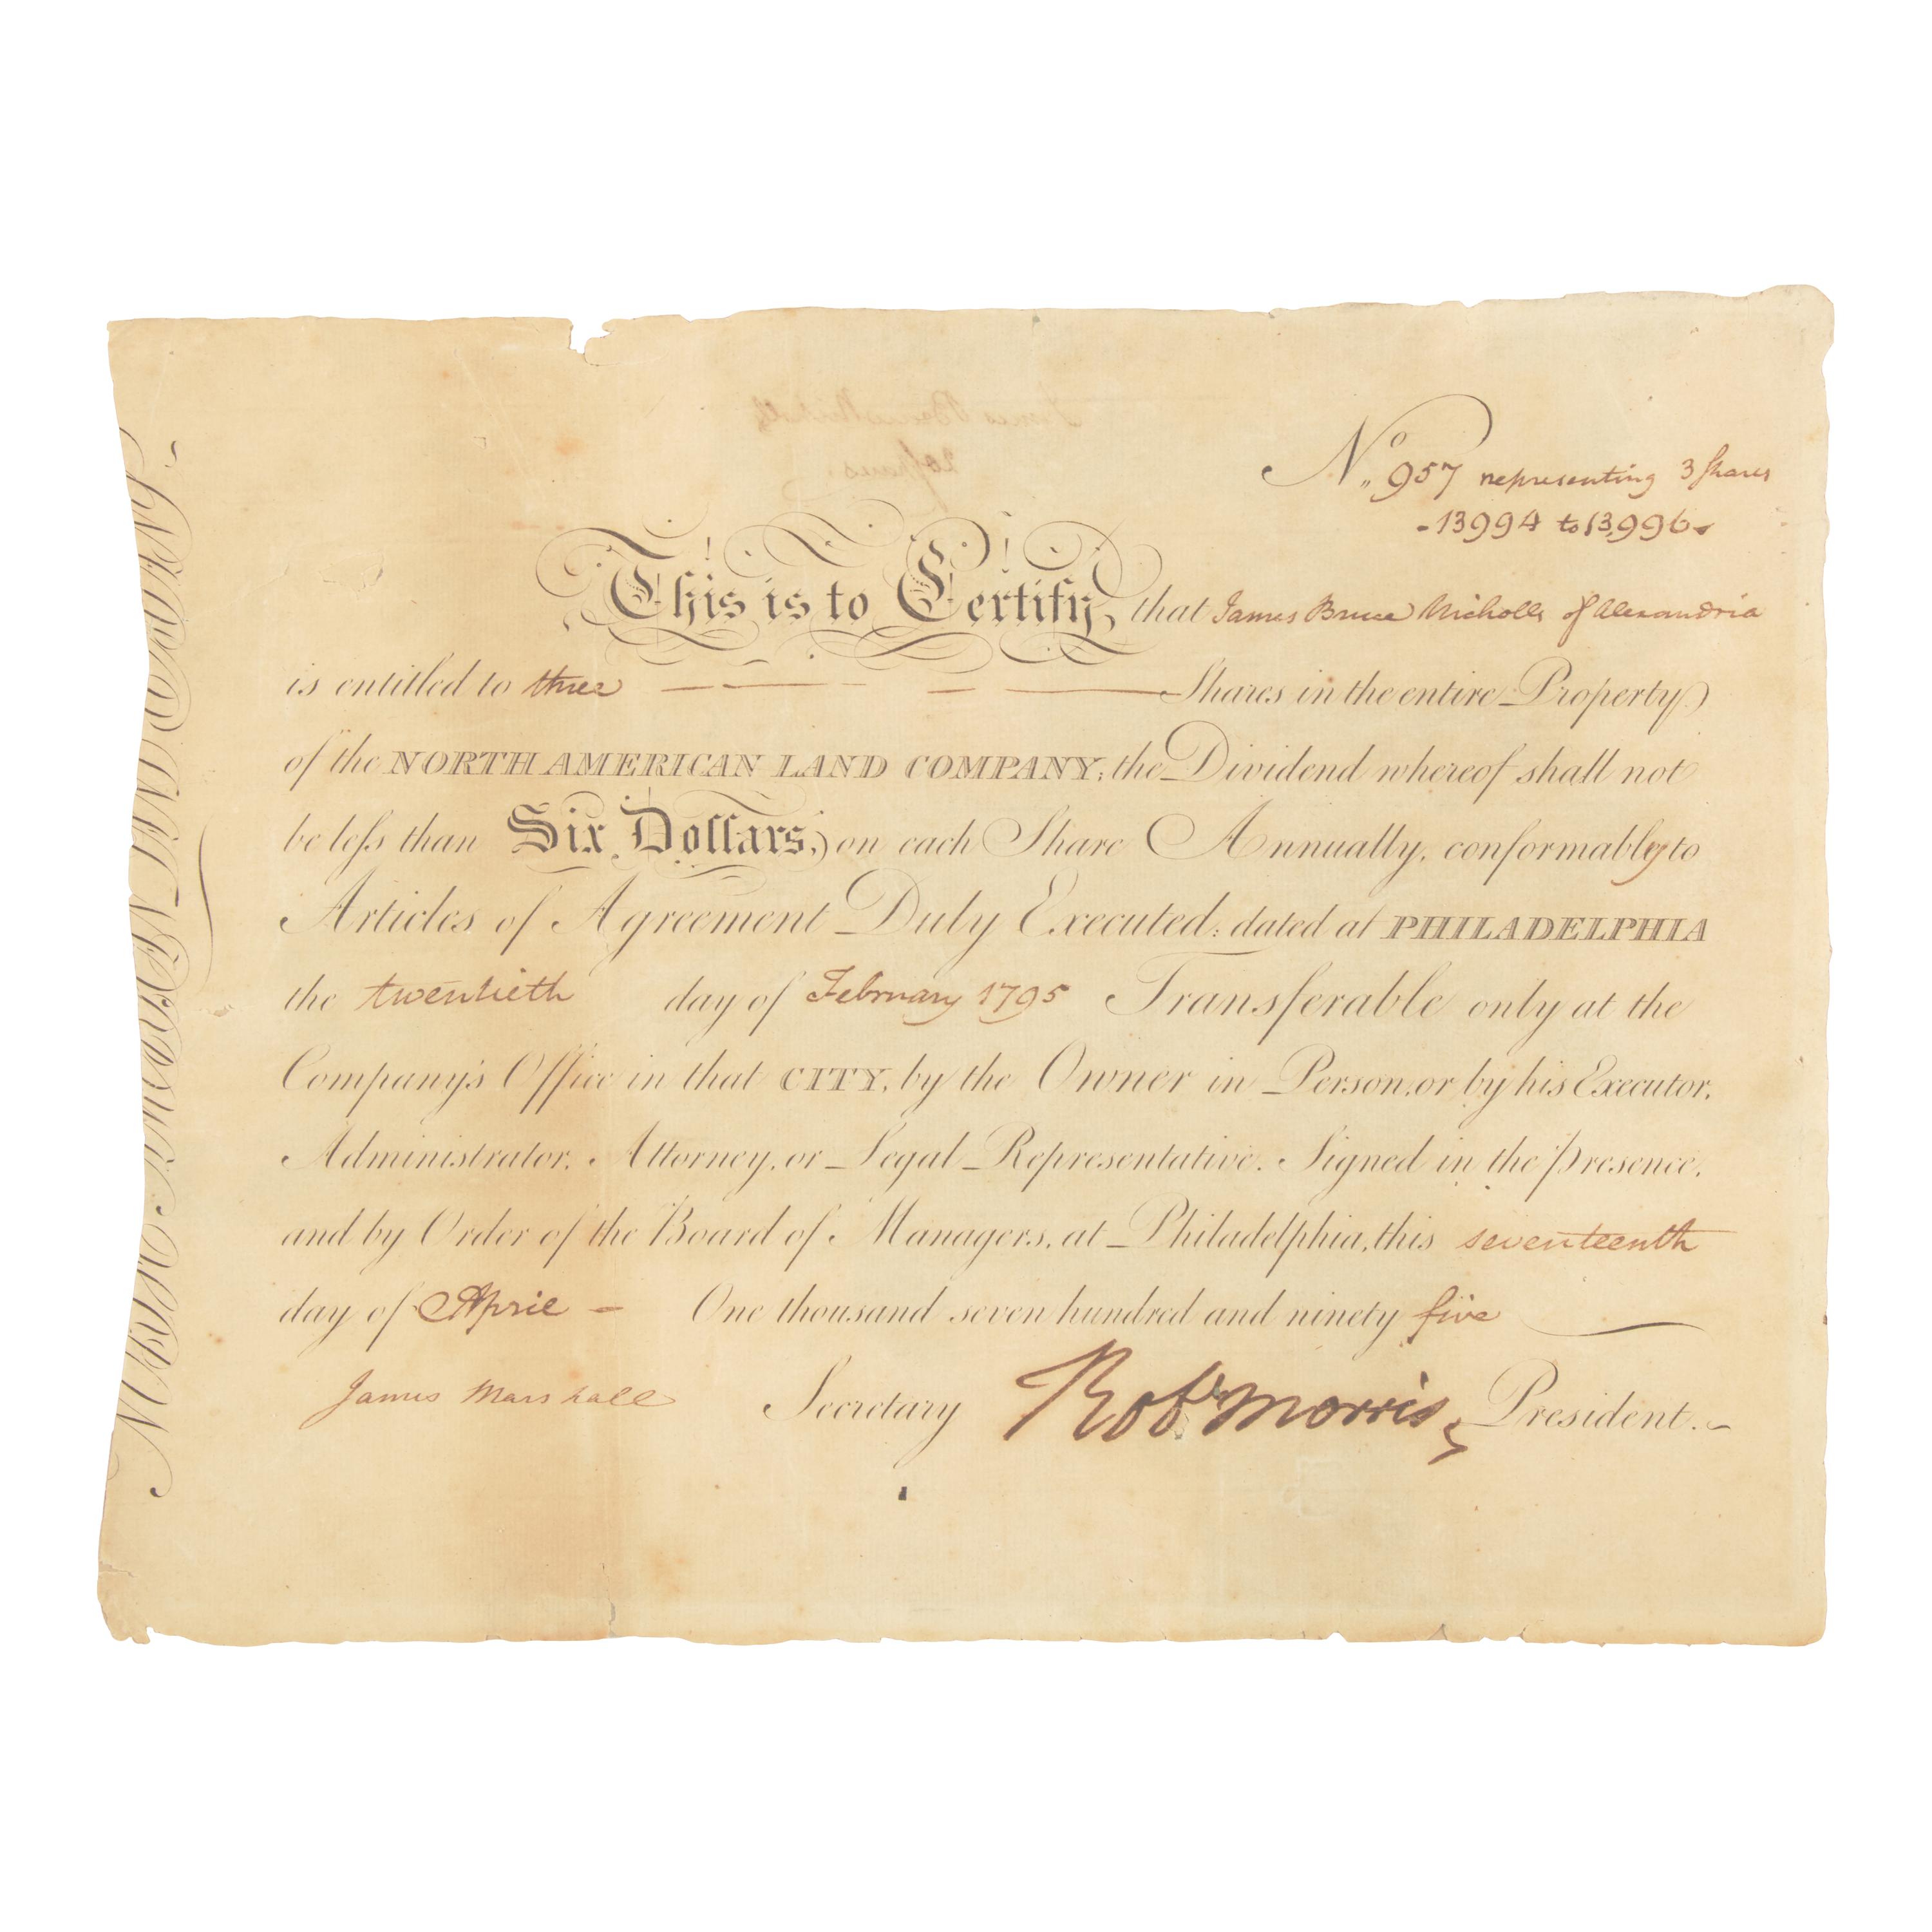 No. 957 representing 3 Shares
- 13994 to 13,996 -
This is to Certify, that James Bruce Nicholls of Alexandria
is entitled to three Shares in the entire Property
of the NORTH AMERICAN LAND COMPANY; the Dividend whereof shall not
be less than Six Dollars, on each Share Annually, conformably to
Articles of Agreement Duly Executed: dated at PHILADELPHIA
the twentieth day of February 1795 Transferable only at the
Company's Office in that CITY, by the Owner in Person, or by his Executor,
Administrator, Attorney, or Legal Representative. Signed in the presence,
and by Order of the Board of Managers, at Philadelphia, this seventeenth
day of April - One thousand seven hundred and ninety five
James Marshall Secretary Robt Morris, President.
NORTH AMERICAN LAND COMPANY